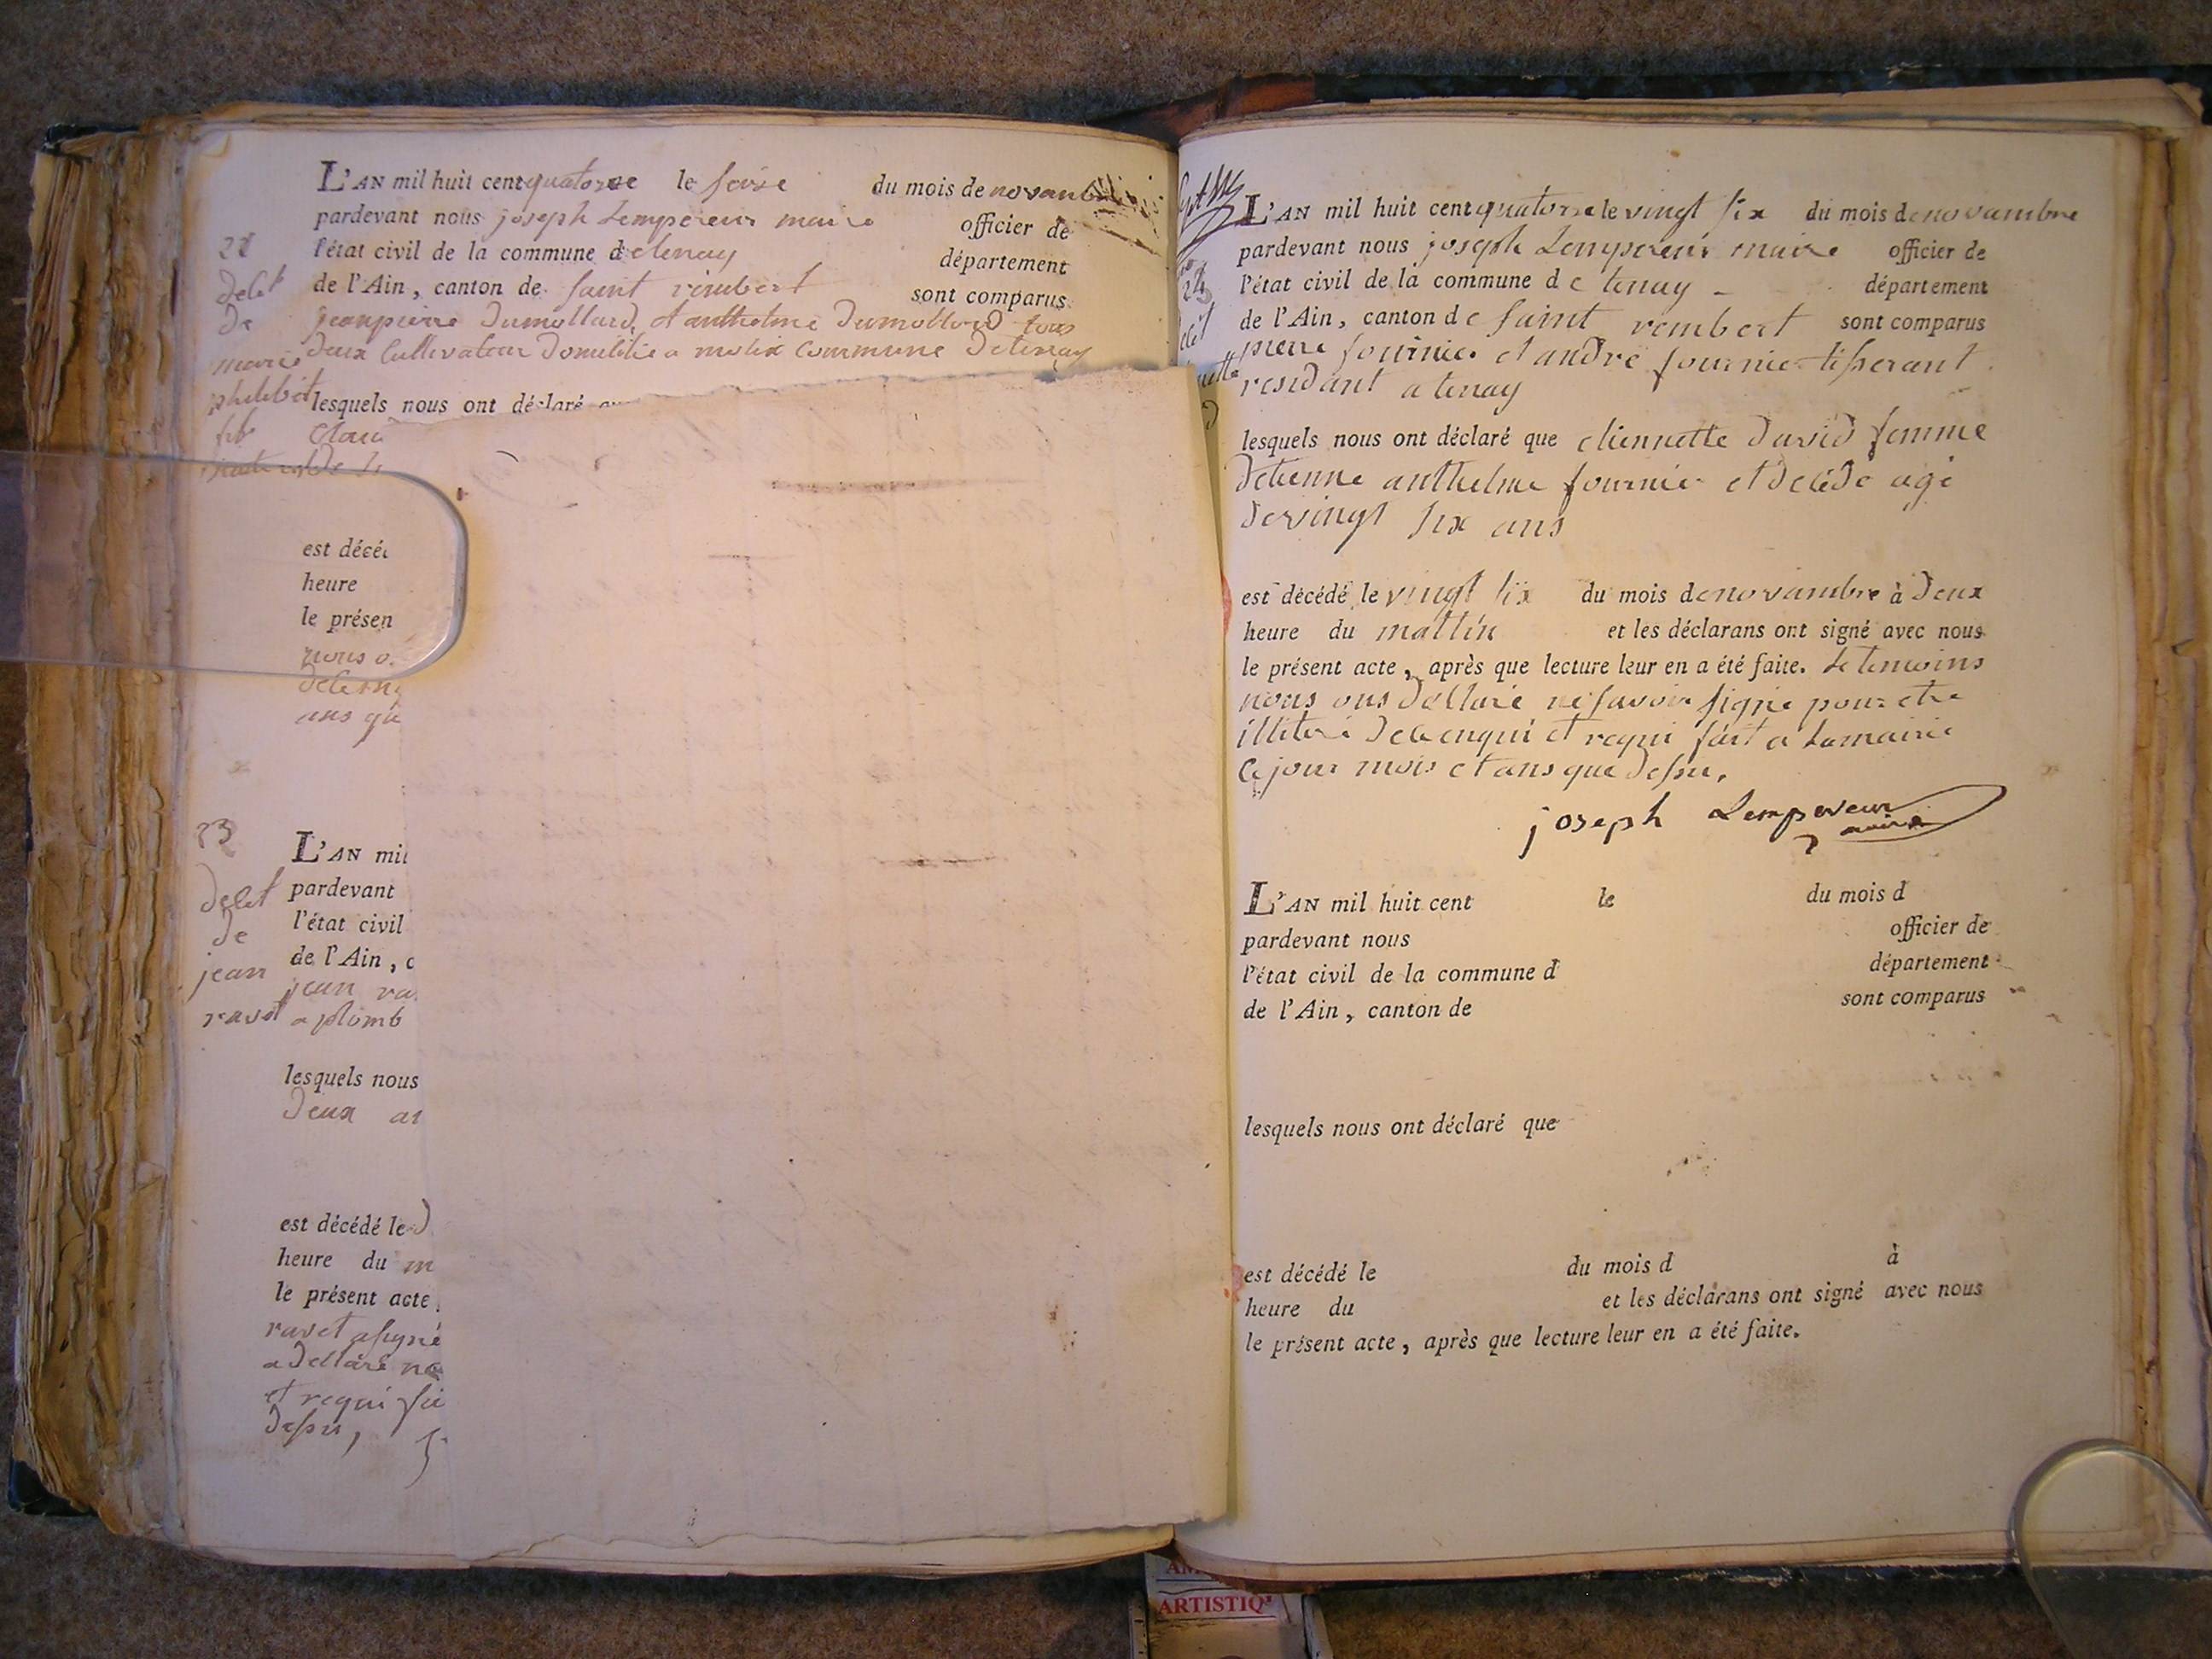 L'AN mil huit cent quatorze le seize du mois de novambre
pardevant nous joseph Lempereur maire officier de
l'état civil de la commune de tenay département
de l'Ain, canton de saint rembert sont comparus
jeanpierre dumollard, et anthelme dumollard tous
deux Cultivateur domicilié a molix commune de tenay
lesquels nous ont déclaré
22
delet
de
marie
philibert
est décé
heure
le présen
nous o
ans que
23
delet
de
jean
ravet
L'AN mil
pardevant
l'état civil
de l'Ain, c
jean ra
a plomb
lesquels nous
deux an
est décédé le d
heure du m
le présent acte,
ravet a signé
a dellaré ne
et requi fai
dessu,
24
L'AN mil huit cent quatorze le vingt six du mois de novambre
pardevant nous joseph Lempereur maire officier de
l'état civil de la commune de tenay département
de l'Ain, canton de saint rembert sont comparus
pierre fournier et andré fournier tisserant
residant a tenay
lesquels nous ont déclaré que etiennette david femme
detienne anthelme fournier et decédé agé
de vingt six ans
est décédé le vingt six du mois de novambre à deux
heure du mattin et les déclarans ont signé avec nous
le présent acte, après que lecture leur en a été faite. Le temoins
nous ons dellaré ne savoir signé pour etre
illiteré de ce enqui et requi fait a La mairie
Ce jour mois et ans que dessu,
joseph Lempereur
maire
L'AN mil huit cent le du mois d
pardevant nous officier de
l'état civil de la commune d département
de l'Ain, canton de sont comparus
lesquels nous ont déclaré que
est décédé le du mois d à
heure du et les déclarans ont signé avec nous
le présent acte, après que lecture leur en a été faite.
ARTISTIQ